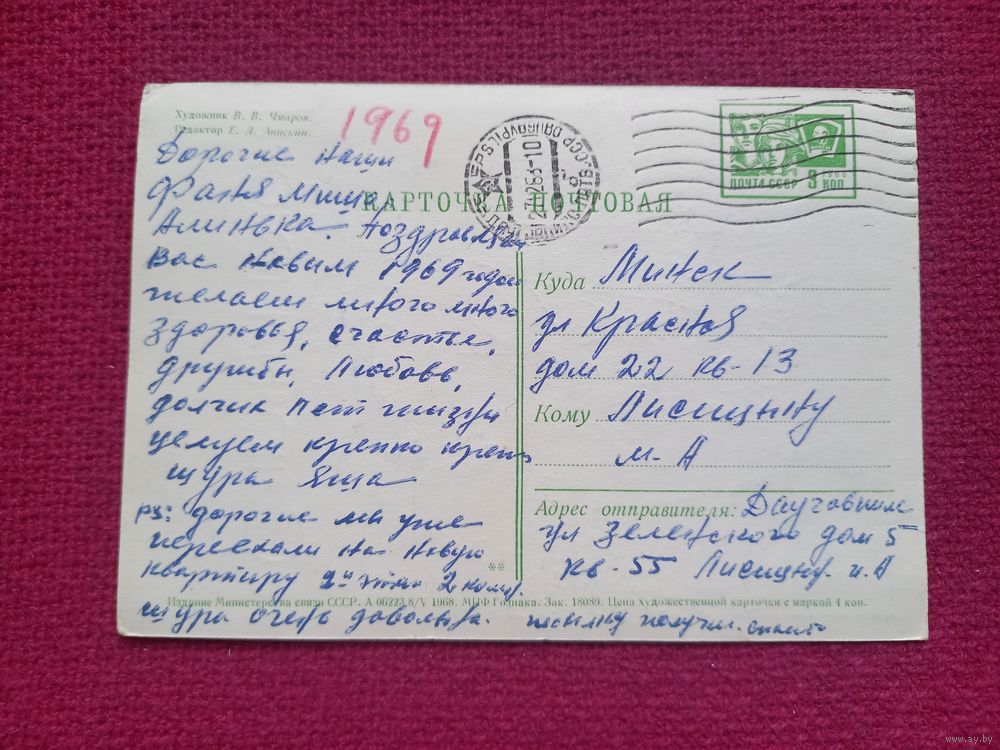 Художник В. В. Чмаров.
Редактор Е. Л. Анискин.
1969
КАРТОЧКА ПОЧТОВАЯ
ПОЧТА СССР 3 КОП
1966
DAUGAVPILS
Дорогие наши
Фаня Миша
Алинька. Поздравляем
Вас Новым 1969 годом
желаем много много
здоровья, счастье,
дружбы, Любовь,
долгих лет жизни
целуем крепко крепко
Шура Яша
PS: дорогие мы уже
переехали на новую
квартиру 2й этаж 2 комн.
Шура очень довольна. посылку получил.
**
Куда Минск
ул Красная
дом 22 кв-13
Кому Лисицыну
м-А
Адрес отправителя: Даугавпилс
ул Зеленского дом 5
кв-55 Лисицын. и. А
Издание Министерства связи СССР. А 06223. 8/V 1968. МПФ Гознака. Зак. 18089. Цена художественной карточки с маркой 4 коп.
www.ay.by